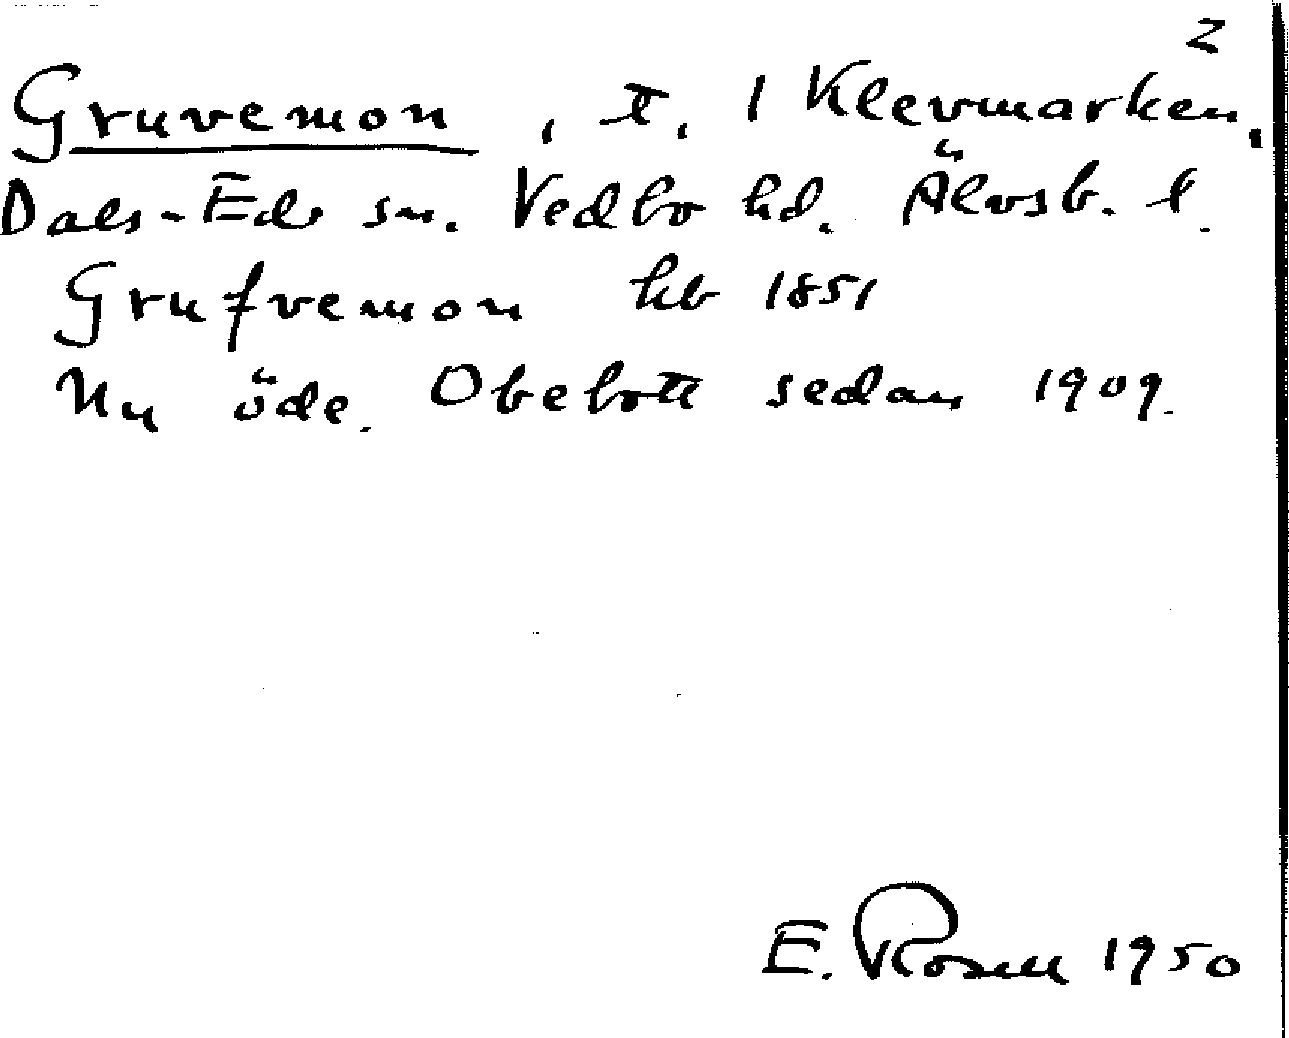 2
Gruvemon, t. 1 Klevmarken,
Dals-Eds sn. Vedbo hd. Älvsb. l.
Grufvemon hb 1851
Nu öde. Obebott sedan 1909.
E. Rosell 1950